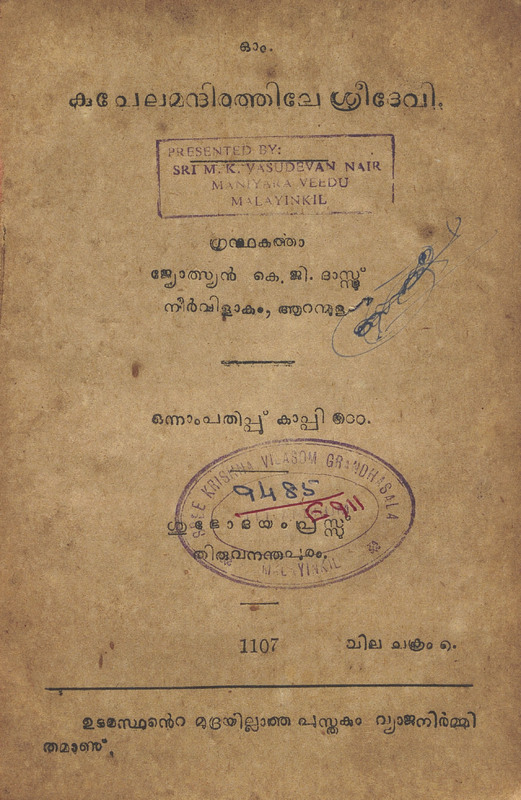 ഓം.
കുചേലമന്ദിരത്തിലേ ശ്രീദേവി.
PRESENTED BY:
SRI M. K. VASUDEVAN NAIR
MANIYARA VEEDU
MALAYINKIL
ഗ്രന്ഥകർത്താ
ജ്യോത്സ്യൻ കെ. ജി. ദാസ്സ്
നീർവിളാകം, ആറന്മുള
ഒന്നാംപതിപ്പ് കാപ്പി ൫൦൦.
SREE KRISHNA VILASOM GRANDHASALA
9485
E911
ശുഭോദയം പ്രസ്സ്
തിരുവനന്തപുരം.
MALAYINKIL
1107 വില ചക്രം ൭.
ഉടമസ്ഥൻെറ മുദ്രയില്ലാത്ത പുസ്തകം വ്യാജനിർമ്മി
തമാണ്.